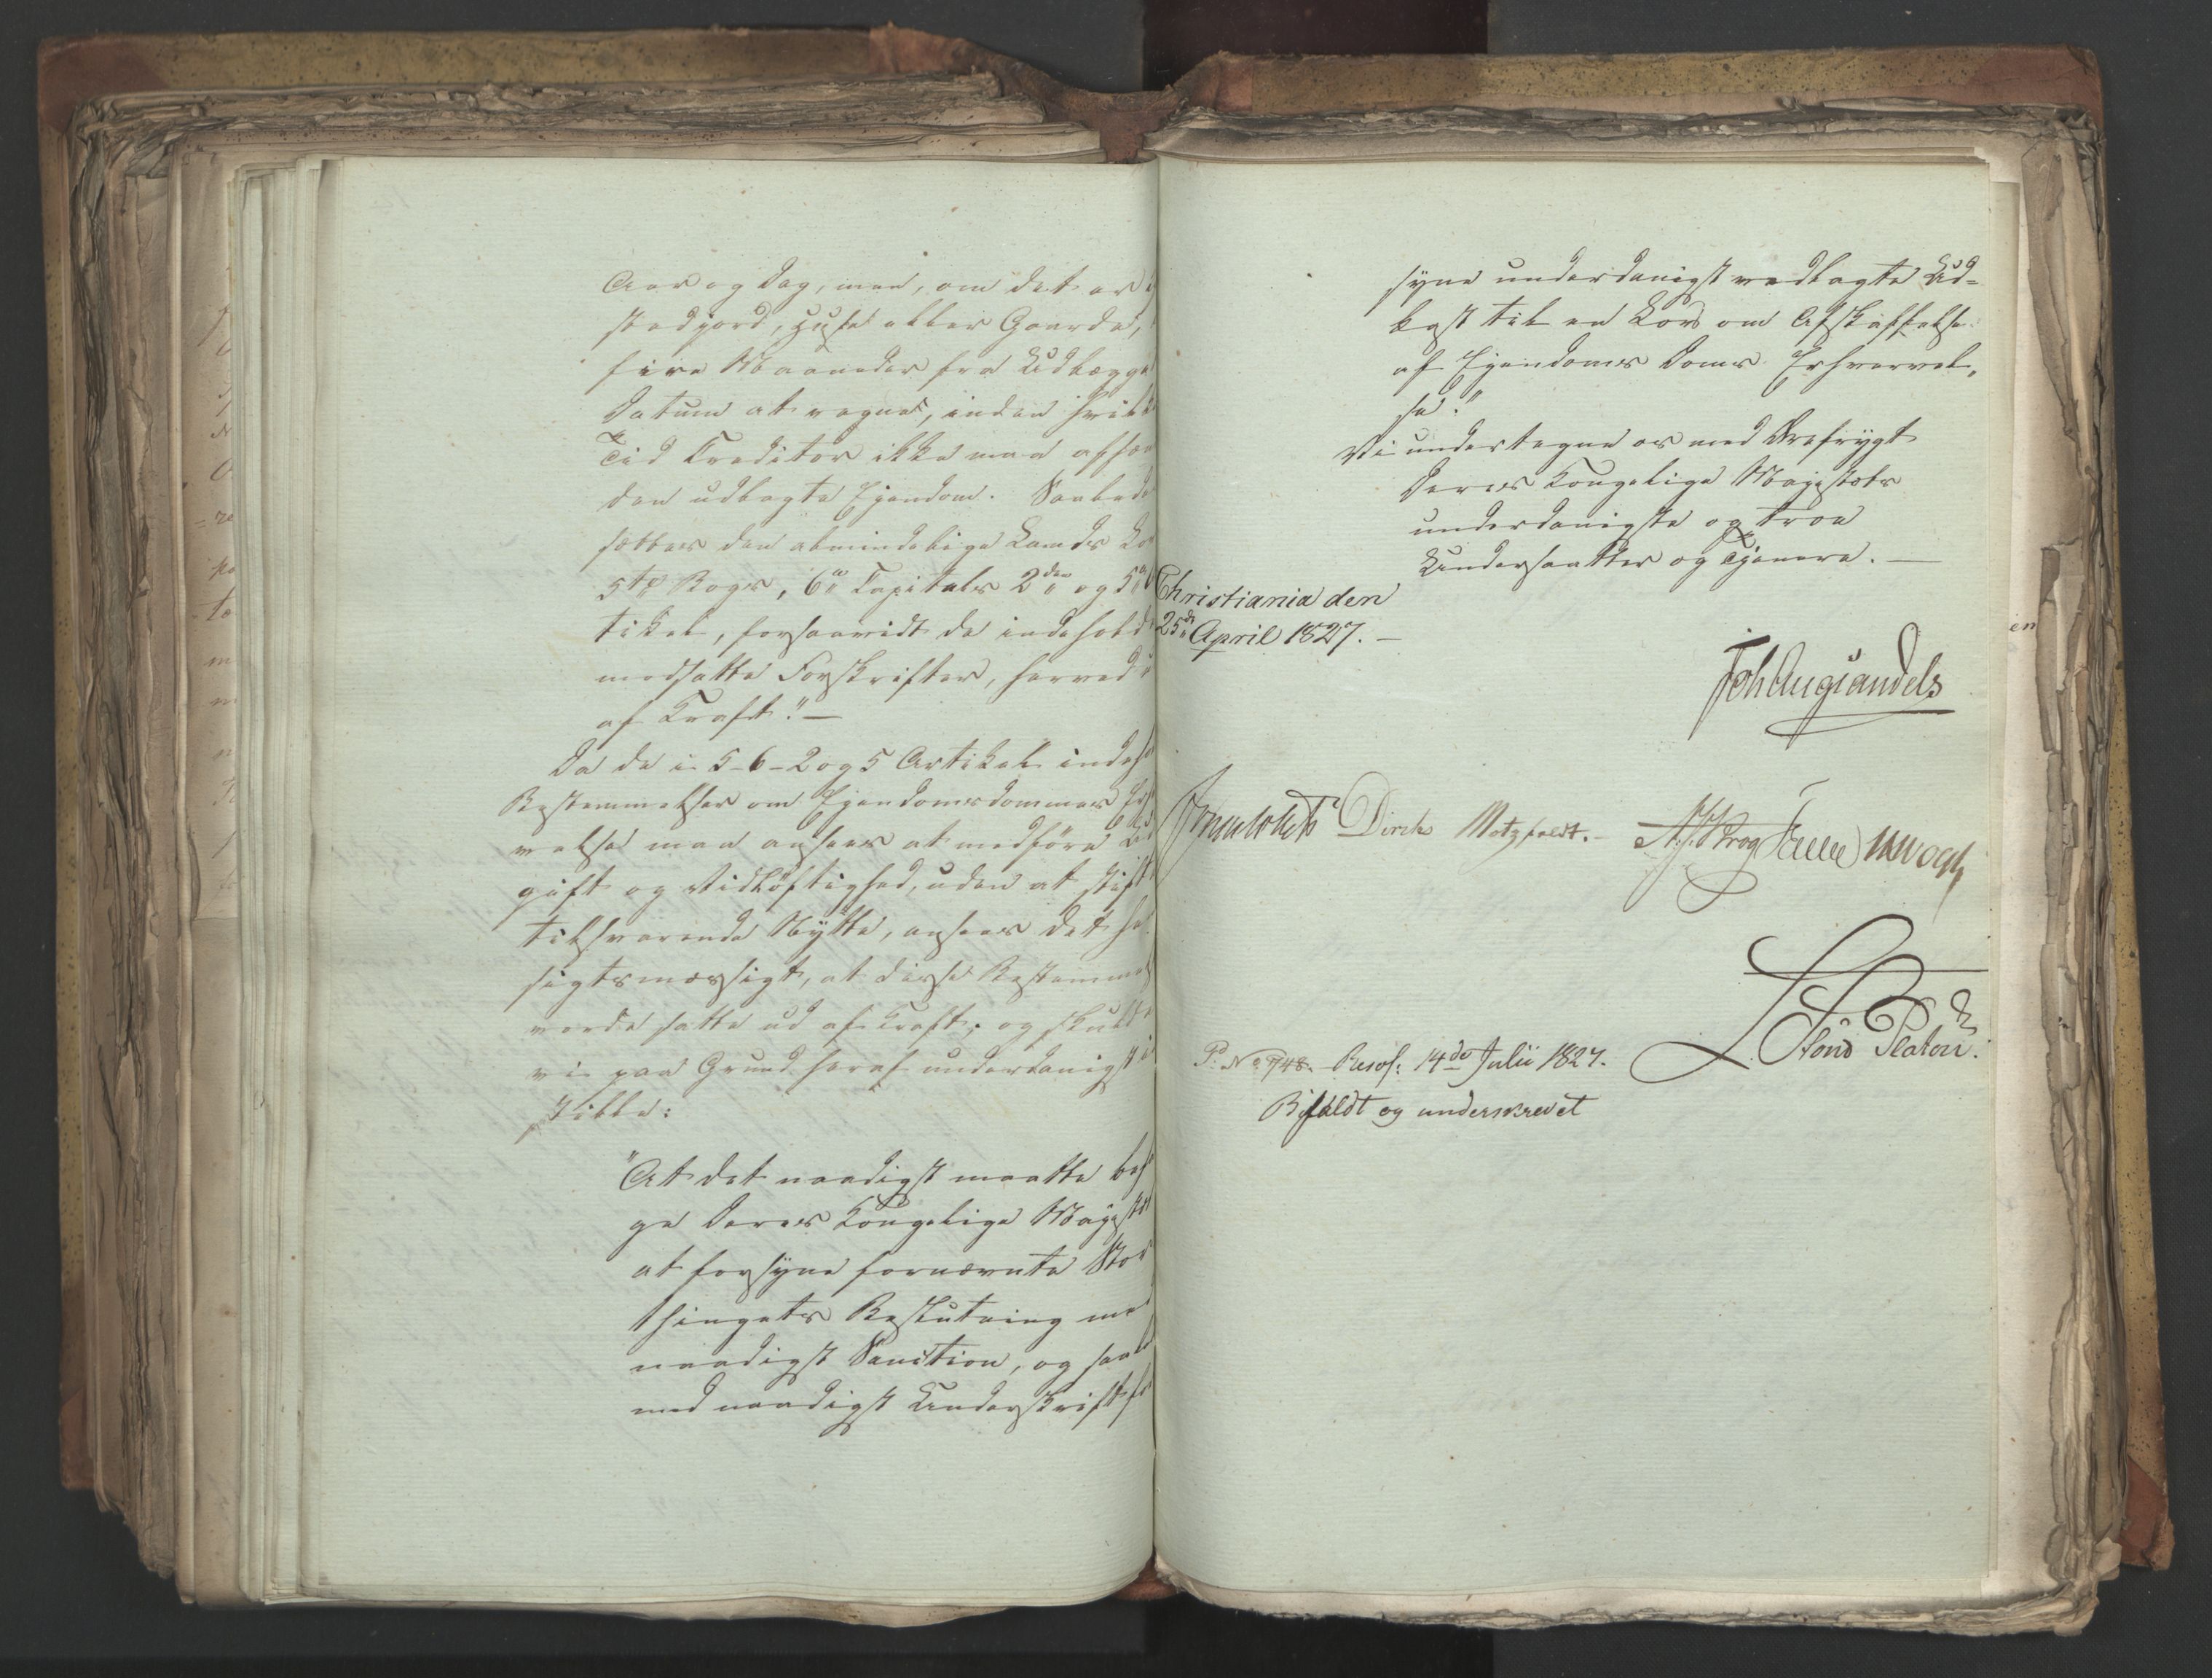 Aar og Dag, men, om det er i
stedjord, Huse eller Gaarde,
fire Maaneder fra Udlægge
Datum at regne, inden hvilk
Tid Creditor ikke maa afhæn
den udlagte Ejendom. Saaled
sættes den almindelige Landets Lo
5te Bogs, 6te Capitels 2den og 5te
tikel, forsaavidt de indehold
modsatte Forskrifter, herved
af Kraft." —
Da de i 5-6-2 og 5 Artikel indeh
Bestemmelser om Ejendomsdommes Erh
velse maa ansees at medföre Ud
gift og Vidtlöftighed, uden at stift
tilsvarende Nytte, ansees det he
sigtsmæssigt, at disse Bestemmel
vorde satte ud af Kraft; og skulle
vi paa Grund heraf underdanigst i
stille:
"At det naadigst maatte beh
ge Deres Kongelige Majestæt
at forsyne fornævnte Stor
thingets Beslutning med
naadigst Sanction, og saal
med naadigst Underskrift for
syne underdanigst vedlagte Ud=
kast til en Lov om Afskaffelse
af Ejendoms Doms Erhvervel„
se."
Vi undertegne os med Ærefrygt
Deres Kongelige Majestæts
underdanigste og troe
Undersaatter og Tjenere. —
Christiania den
25de April 1827. —
Joh Aug Sandels
Dirch Motzfeldt.
A. J. Krog
P. No 748. Resol: 14de Julii 1827.
Bifaldt og underskrevet